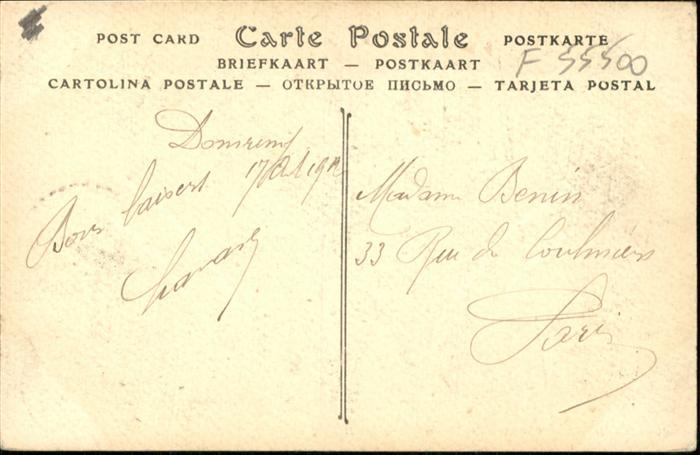 POST CARD Carte Postale POSTKARTE
BRIEFKAART — POSTKAART
CARTOLINA POSTALE — ОТКРЫТОЕ ПИСЬМО — TARJETA POSTAL
F 55500
Domremy
17 Oct 191
Bons baisers
Madame Benin
33 Rue de Coulmiers
Paris